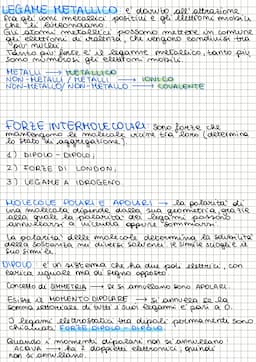 LEGAME METALLICO è dovuto all'attrazione
fra gli ioni metallici positivi e gli elettroni mobili
che li circondano.
Gli atomi metallici possono mettere in comune
gli elettroni di valenza, che vengono condivisi tra
più nuclei.
Tanto più forte è il legame metallico, tanto più
sono numerosi gli elettroni mobili.
METALLI → METALLICO
NON-METALLI / METALLI → IONICO
NON-METALLO / NON-METALLO → COVALENTE
FORZE INTERMOLECOLARI sono forze che
mantengono le molecole vicine tra loro (determina
lo stato di aggregazione).
1) DIPOLO - DIPOLO;
2) FORZE DI LONDON;
3) LEGAME A IDROGENO.
MOLECOLE POLARI E APOLARI → la polarità di
una molecola dipende dalla sua geometria, grazie
alla quale le polarità dei legami possono
annullarsi a vicenda oppure sommarsi.
La polarità delle molecole determina la solubilità
della sostanza nei diversi solventi. Il simile scioglie il
suo simile.
DIPOLO è un sistema che ha due poli elettrici, con
carica uguale ma di segno opposto.
Concetto di SIMMETRIA → se si annullano sono APOLARI.
Esiste il MOMENTO DIPOLARE → si annulla se la
somma vettoriale di tutti i suoi legami è pari a 0.
I legami elettrostatici tra dipoli permanenti sono
chiamati FORZE DIPOLO - DIPOLO.
Quando i momenti dipolari non si annullano
ACQUA → ha 2 doppietti elettronici, quindi
non si annullano.